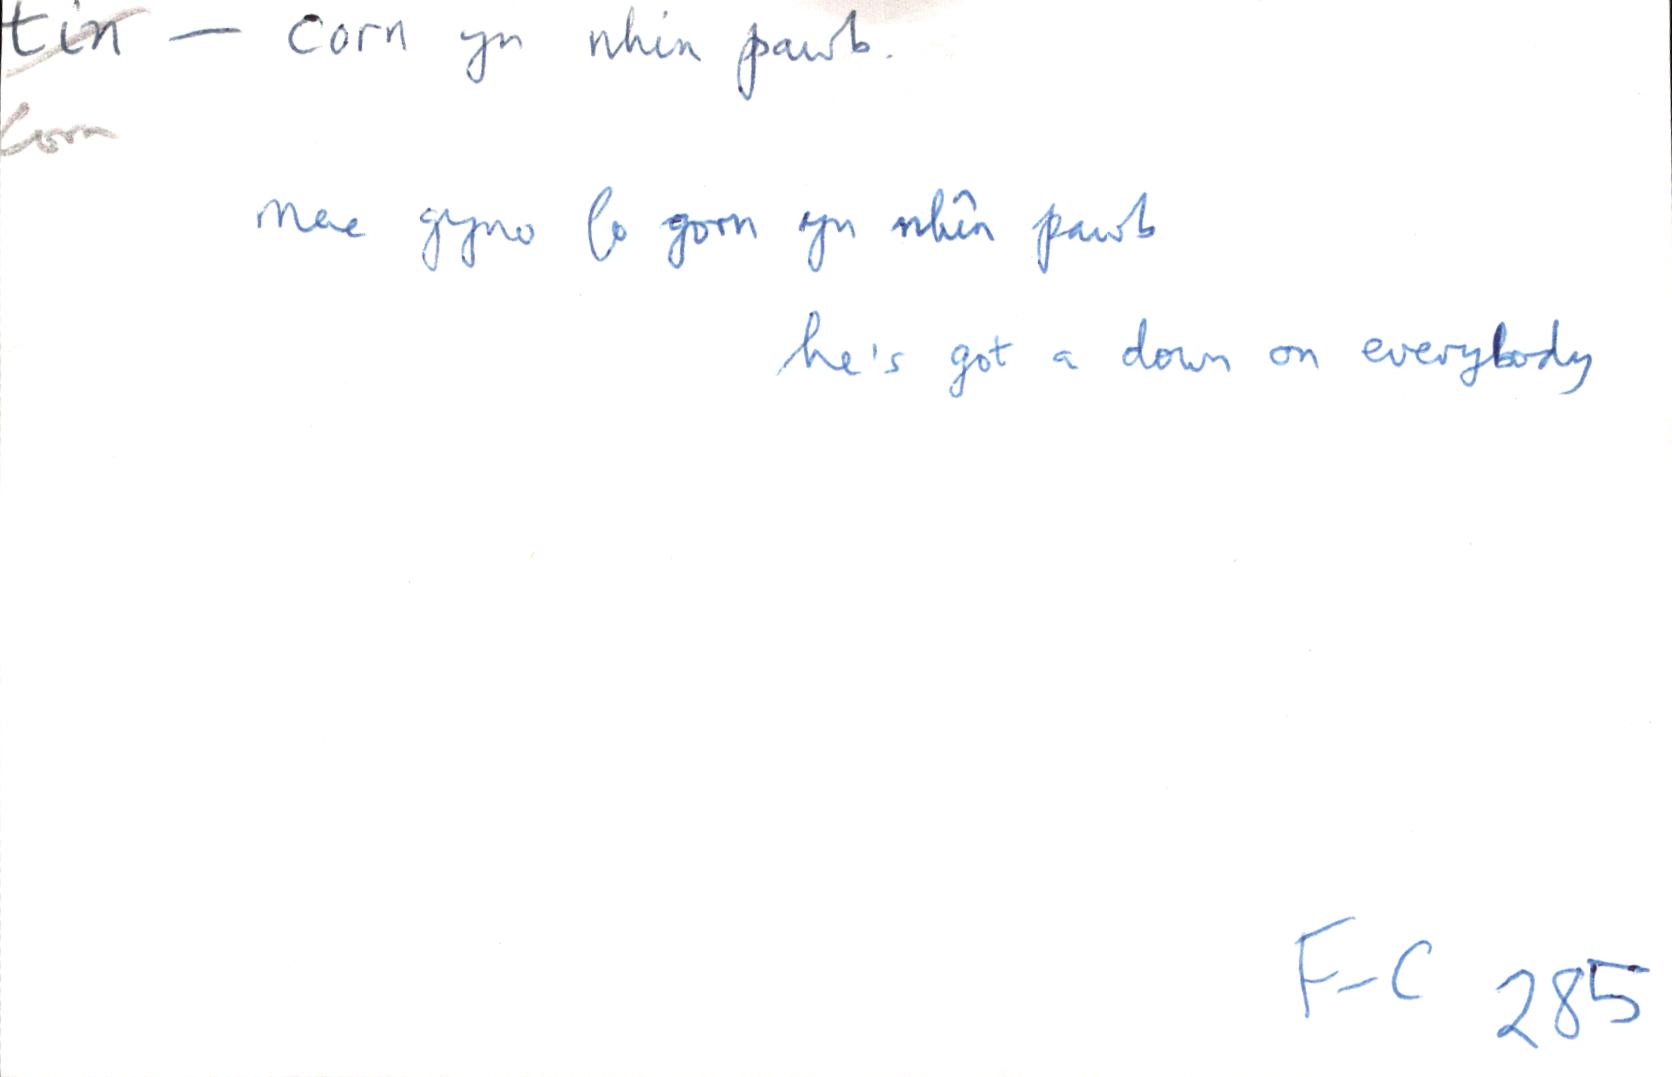 tin — corn yn nhin pawb.
Corn
mae gyno fo gorn yn nhîn pawb
he's got a down on everybody
F-C 285